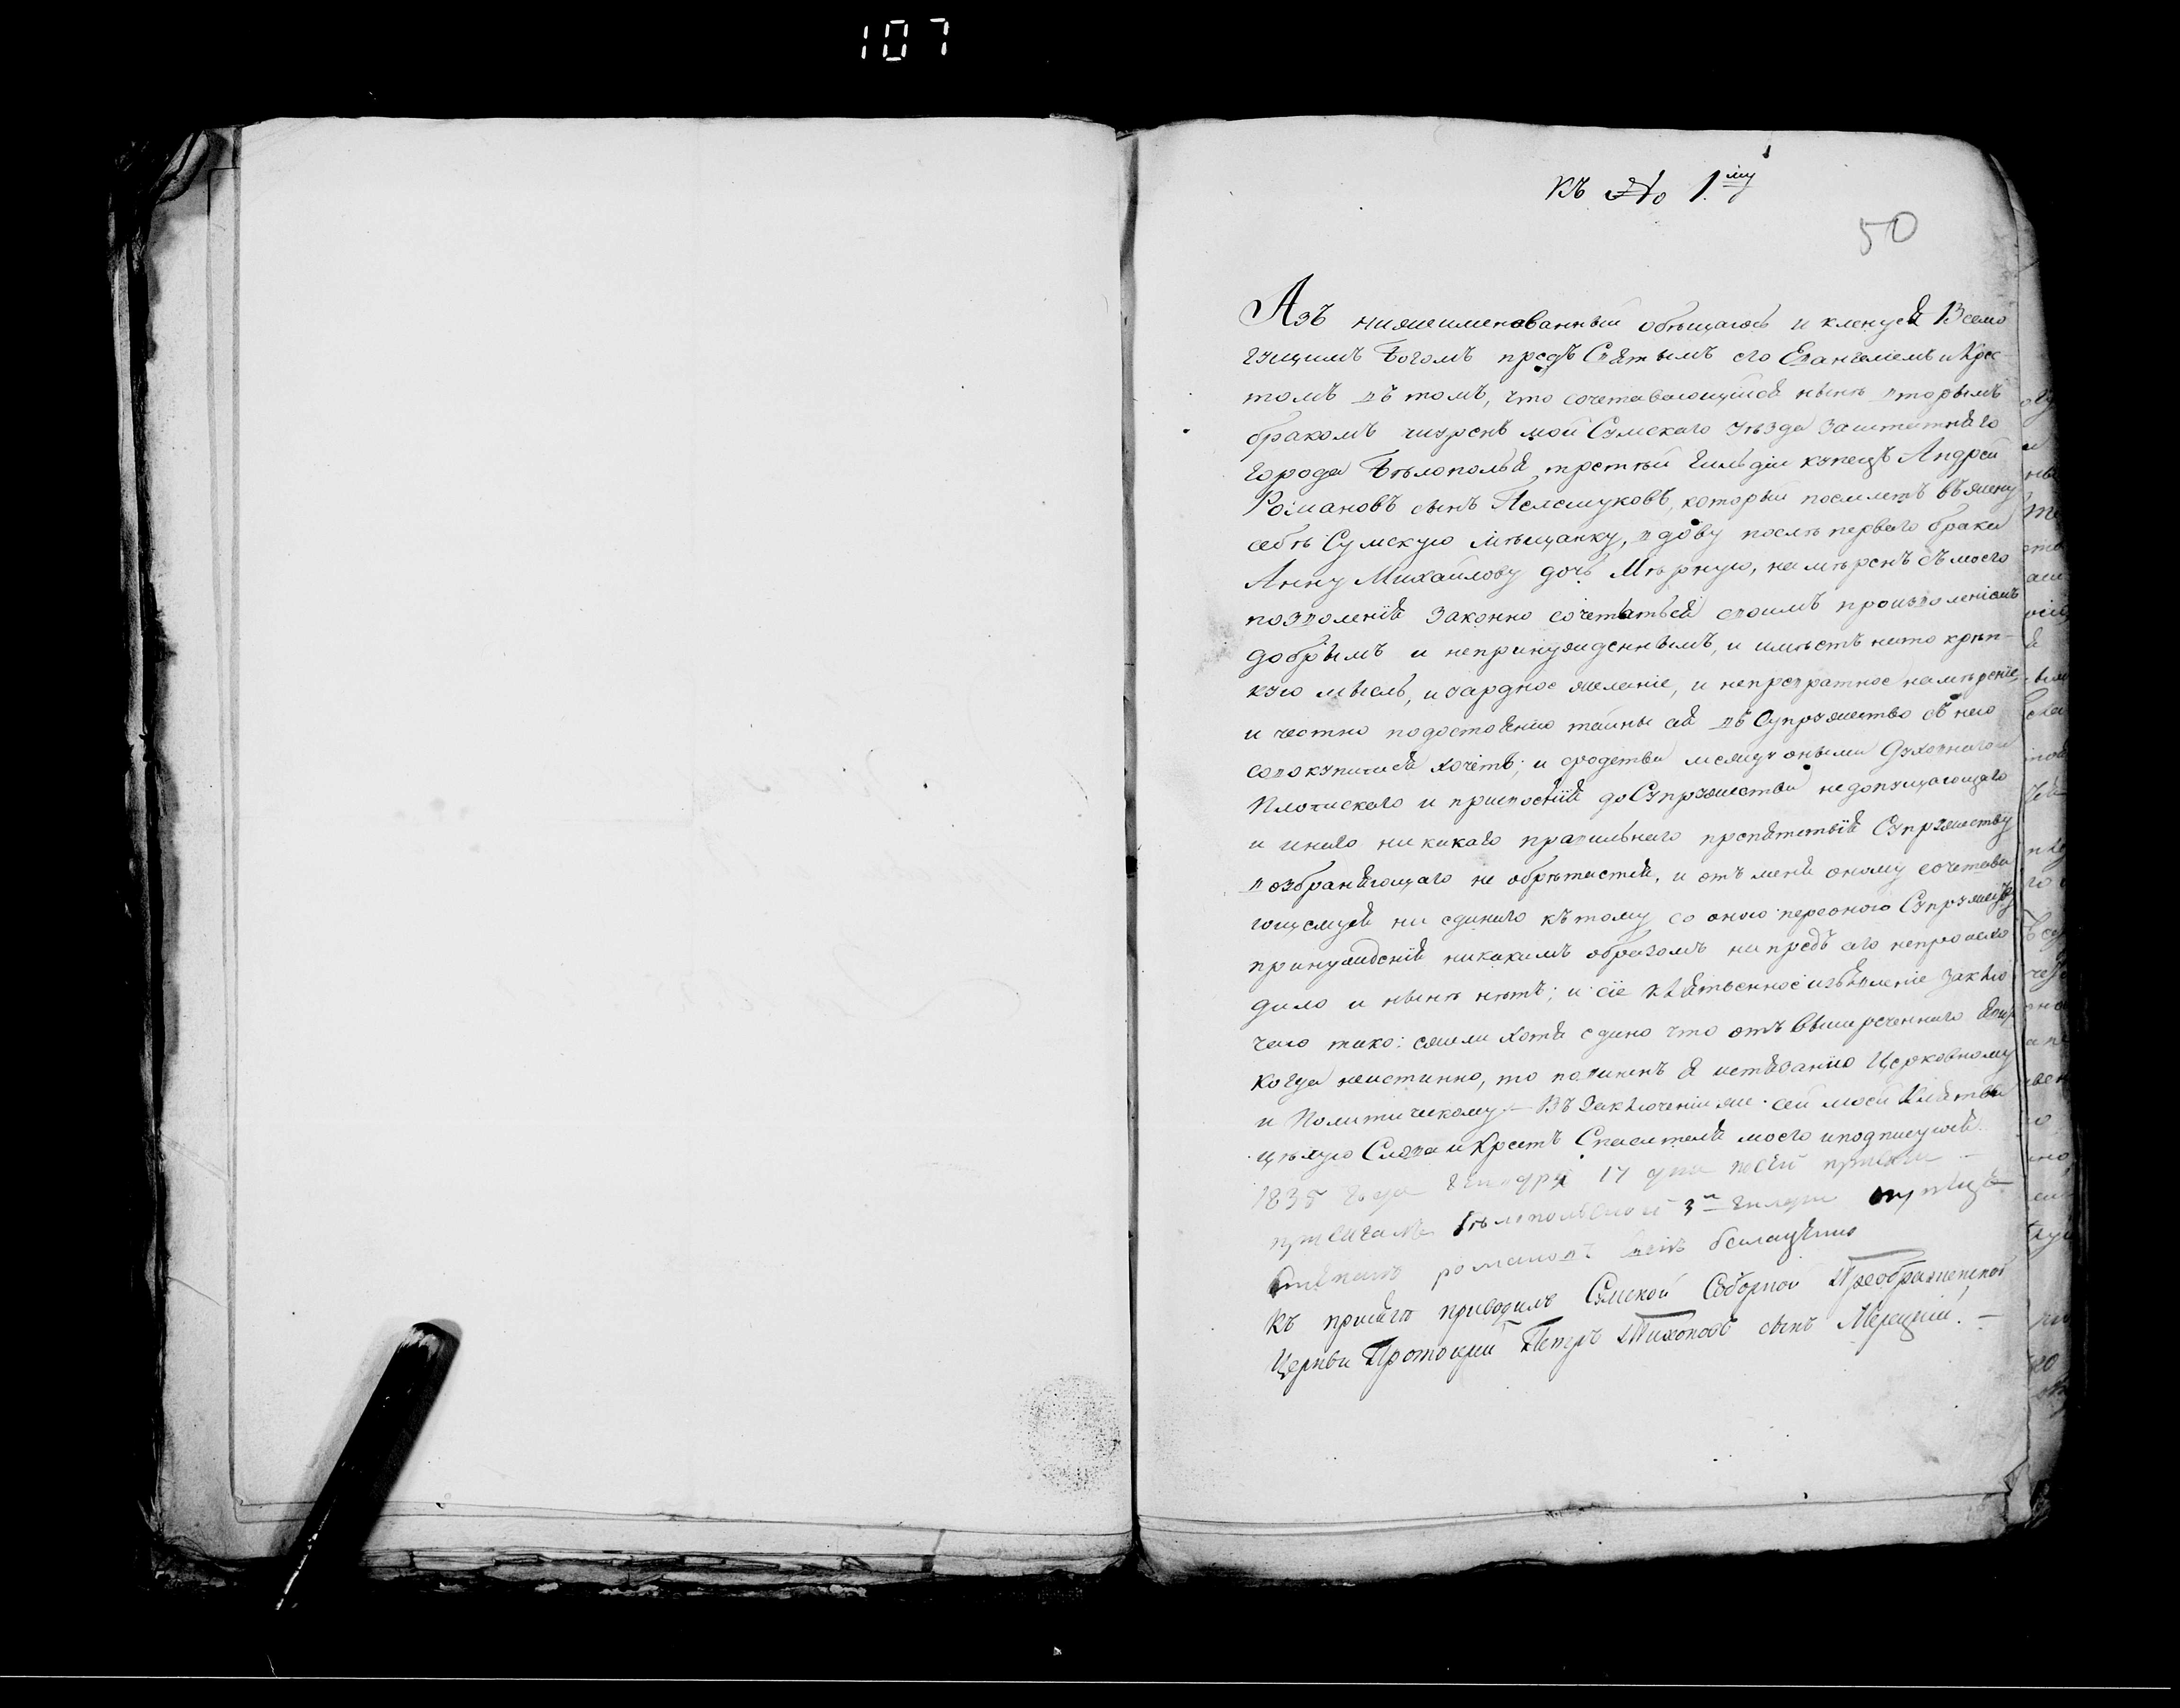 107
Къ № 1му
50
Азъ нижеименованный обѣщаюсь и кленуся Всемо
гущимъ Богомъ предъ Святымъ его Евангелiемъ и Крес
томъ въ томъ, что сочетавающiйся нынѣ вторымъ
бракомъ шуренъ мой Сумскаго уѣзда заштатнаго
города Бѣлополья третьей гильдiи купецъ Андрей
Романовъ сынъ, который поемлетъ въ жену
себѣ Сумскую мѣщанку, вдову послѣ перваго брака
Анну Михайлову дочь Мѣрную, намѣренъ съ моего
позволенiя законно сочетаться своимъ произволенiемъ
добрымъ и непринужденнымъ, и имѣетъ на то крѣп-
кую мысль, и усрдное желанiе, и непревратное намѣренiе,
и честно по достоянiю тайны сея въ Супружество съ нею
совокупитися хочетъ; и сродства между оными духовнаго и
Плотскаго и присвоенiя до Супружества недопущающаго
и инаго никакаго правильнаго препятствiя Супружеству
возбраняющаго не обрѣтается, и отъ меня оному сочетава
ющемуся ни единаго къ тому со оною персоною Супружеству
принужденiя никакимъ образомъ ни предъ сего непроисхо
дило и нынѣ нѣтъ; и сiе клятвенное изъявленiе заклю
чаю тако: ежели хотя едино что отъ вышереченнаго явит
когда неистинно, то повиненъ я истязанiю Церковному
и Политическому. — Въ заключенiи же сей моей Клятвы
цѣлую Слова и Крестъ Спасителя моего и подписуюся.
1835 года генваря 17 дня к сей присяги —
Бѣлопольской 3й гильди купецъ
романовъ сынъ
Къ присягѣ приводилъ Сумской Соборной Преображенской
Церкви Протоиерей Петръ Тихоновъ сынъ Мерецкiй. —